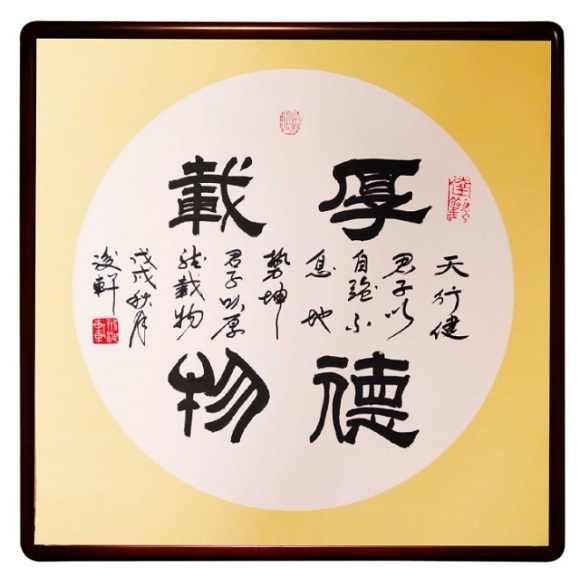 厚德
載物
天行健
君子以
自強不
息地
勢坤
君子以厚
德載物
戊戌秋月
軒